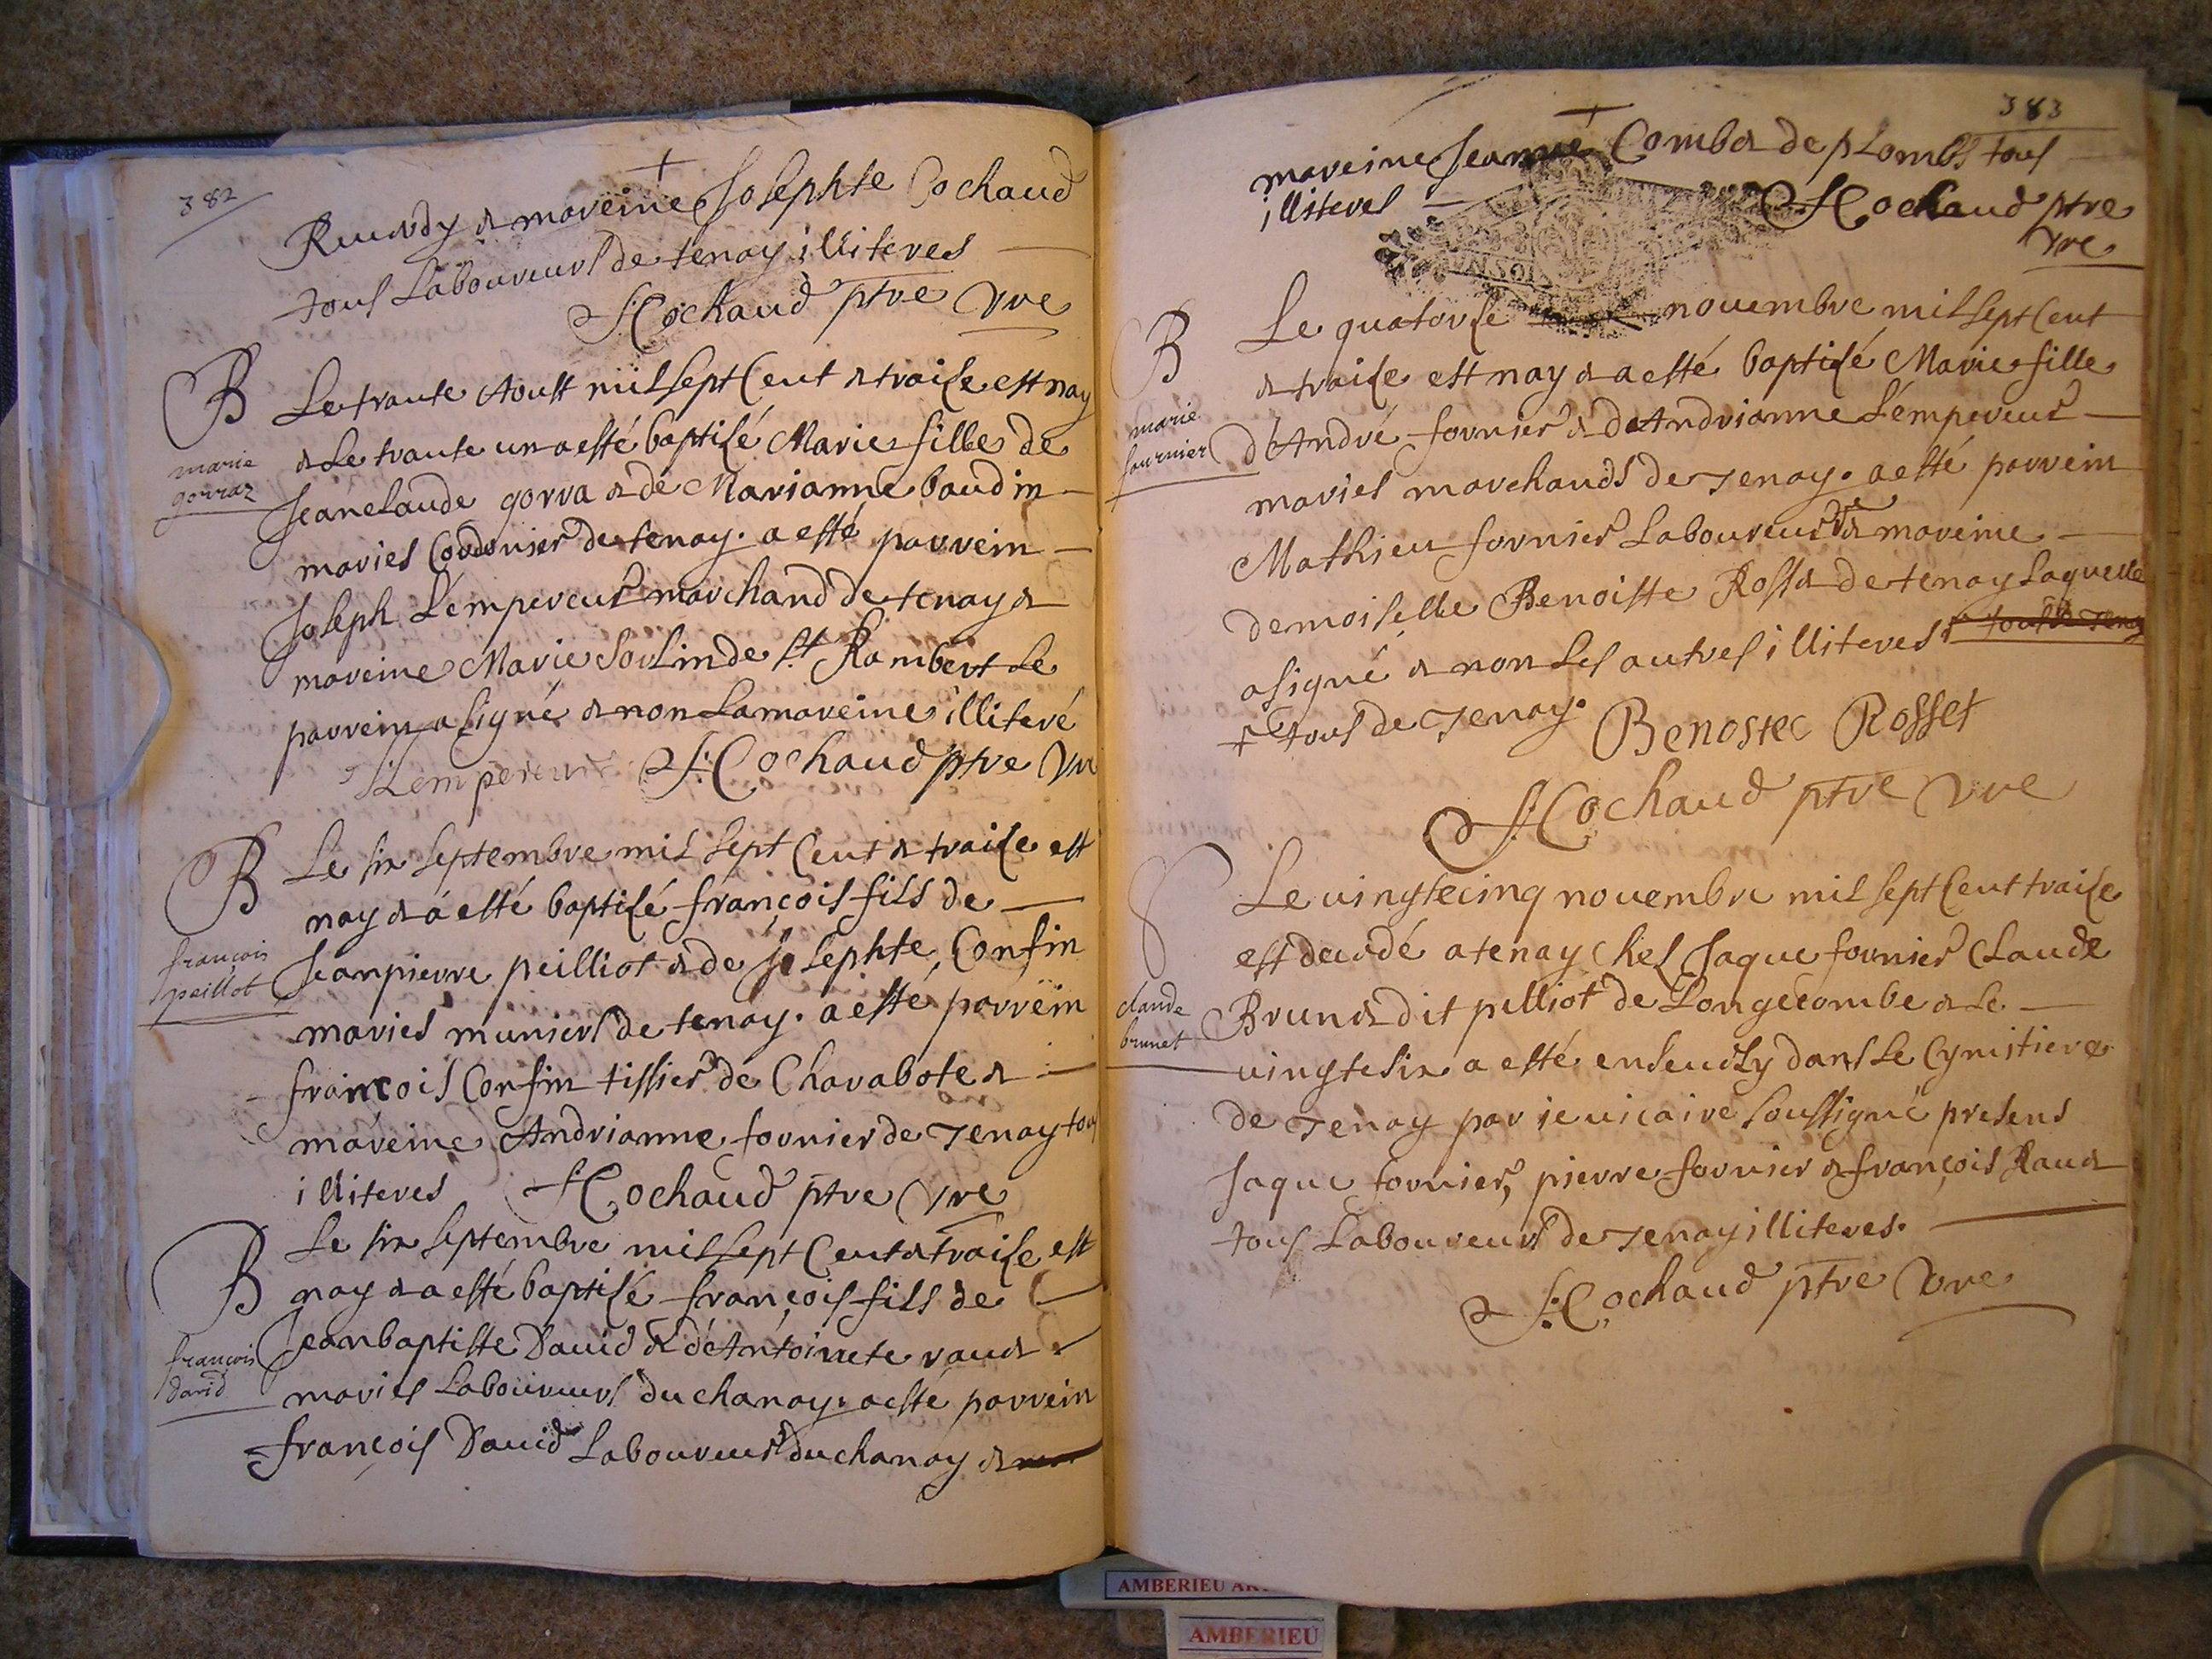 382
+
Ruendy & mareine Josephte Cochaud
tous Laboureurs de tenay illiteres
J: Cochaud ptre vre
B
Le trante Aoust mil sept Cent & traise est nay
marie
gorraz
& Le trante un a esté baptisé Marie fille de
Jeanclaude gorra & de Marianne baudin
mariés Cordonier de tenay. a esté parrein
Joseph L'empereur marchand de tenay &
mareine Marie Sorlin de St Rambert Le
parrein a signé & non La mareine illiteré
J: Lempereur J: Cochaud ptre vre
B
Le six septembre mil sept Cent & traise est
nay & a esté baptisé françois fils de
françois
peillot
Jeanpierre peilliot & de Josephte Confin
mariés muniers de tenay. a esté parrein
françois Confin tissier de Charabote &
mareine Andrianne fornier de Tenay tous
illiteres J: Cochaud ptre vre
B
Le six septembre mil sept Cent & traise est
nay & a esté baptisé françois fils de
françois
david
Jeanbaptiste David & d'Antoinete raud
mariés Laboureurs du chanay. a esté parrein
françois David Laboureur du chanay &
383
+
mareine Jeanne Combet de plombs tous
illiteres
J: Cochaud ptre
vre
B
Le quatorse novembre mil sept Cent
& traise est nay & a esté baptisé Marie fille
marie
fournier
d'André fornier & d'Andrianne L'empereur
mariés marchands de Tenay. a esté parrein
Mathieu fornier Laboureur & mareine
demoiselle Benoiste Rosset de tenay Laquelle
a signé & non Les autres illiteres + tous de Tenay
+ tous de Tenay. Benostec Rosset
J: Cochaud ptre vre
Le vingtecinq novembre mil sept Cent traise
est decedé a tenay chés Jaque fornier Claude
claude
brunet
Brunet dit pilliot de Longecombe & Le
vingtesix a esté ensevely dans Le Cymitiere
de Tenay par je vicaire soussigné presens
Jaque fornier, pierre fornier & françois Raud
tous Laboureurs de Tenay illiteres.
J: Cochaud ptre vre
AMBERIEU
AMBERIEU